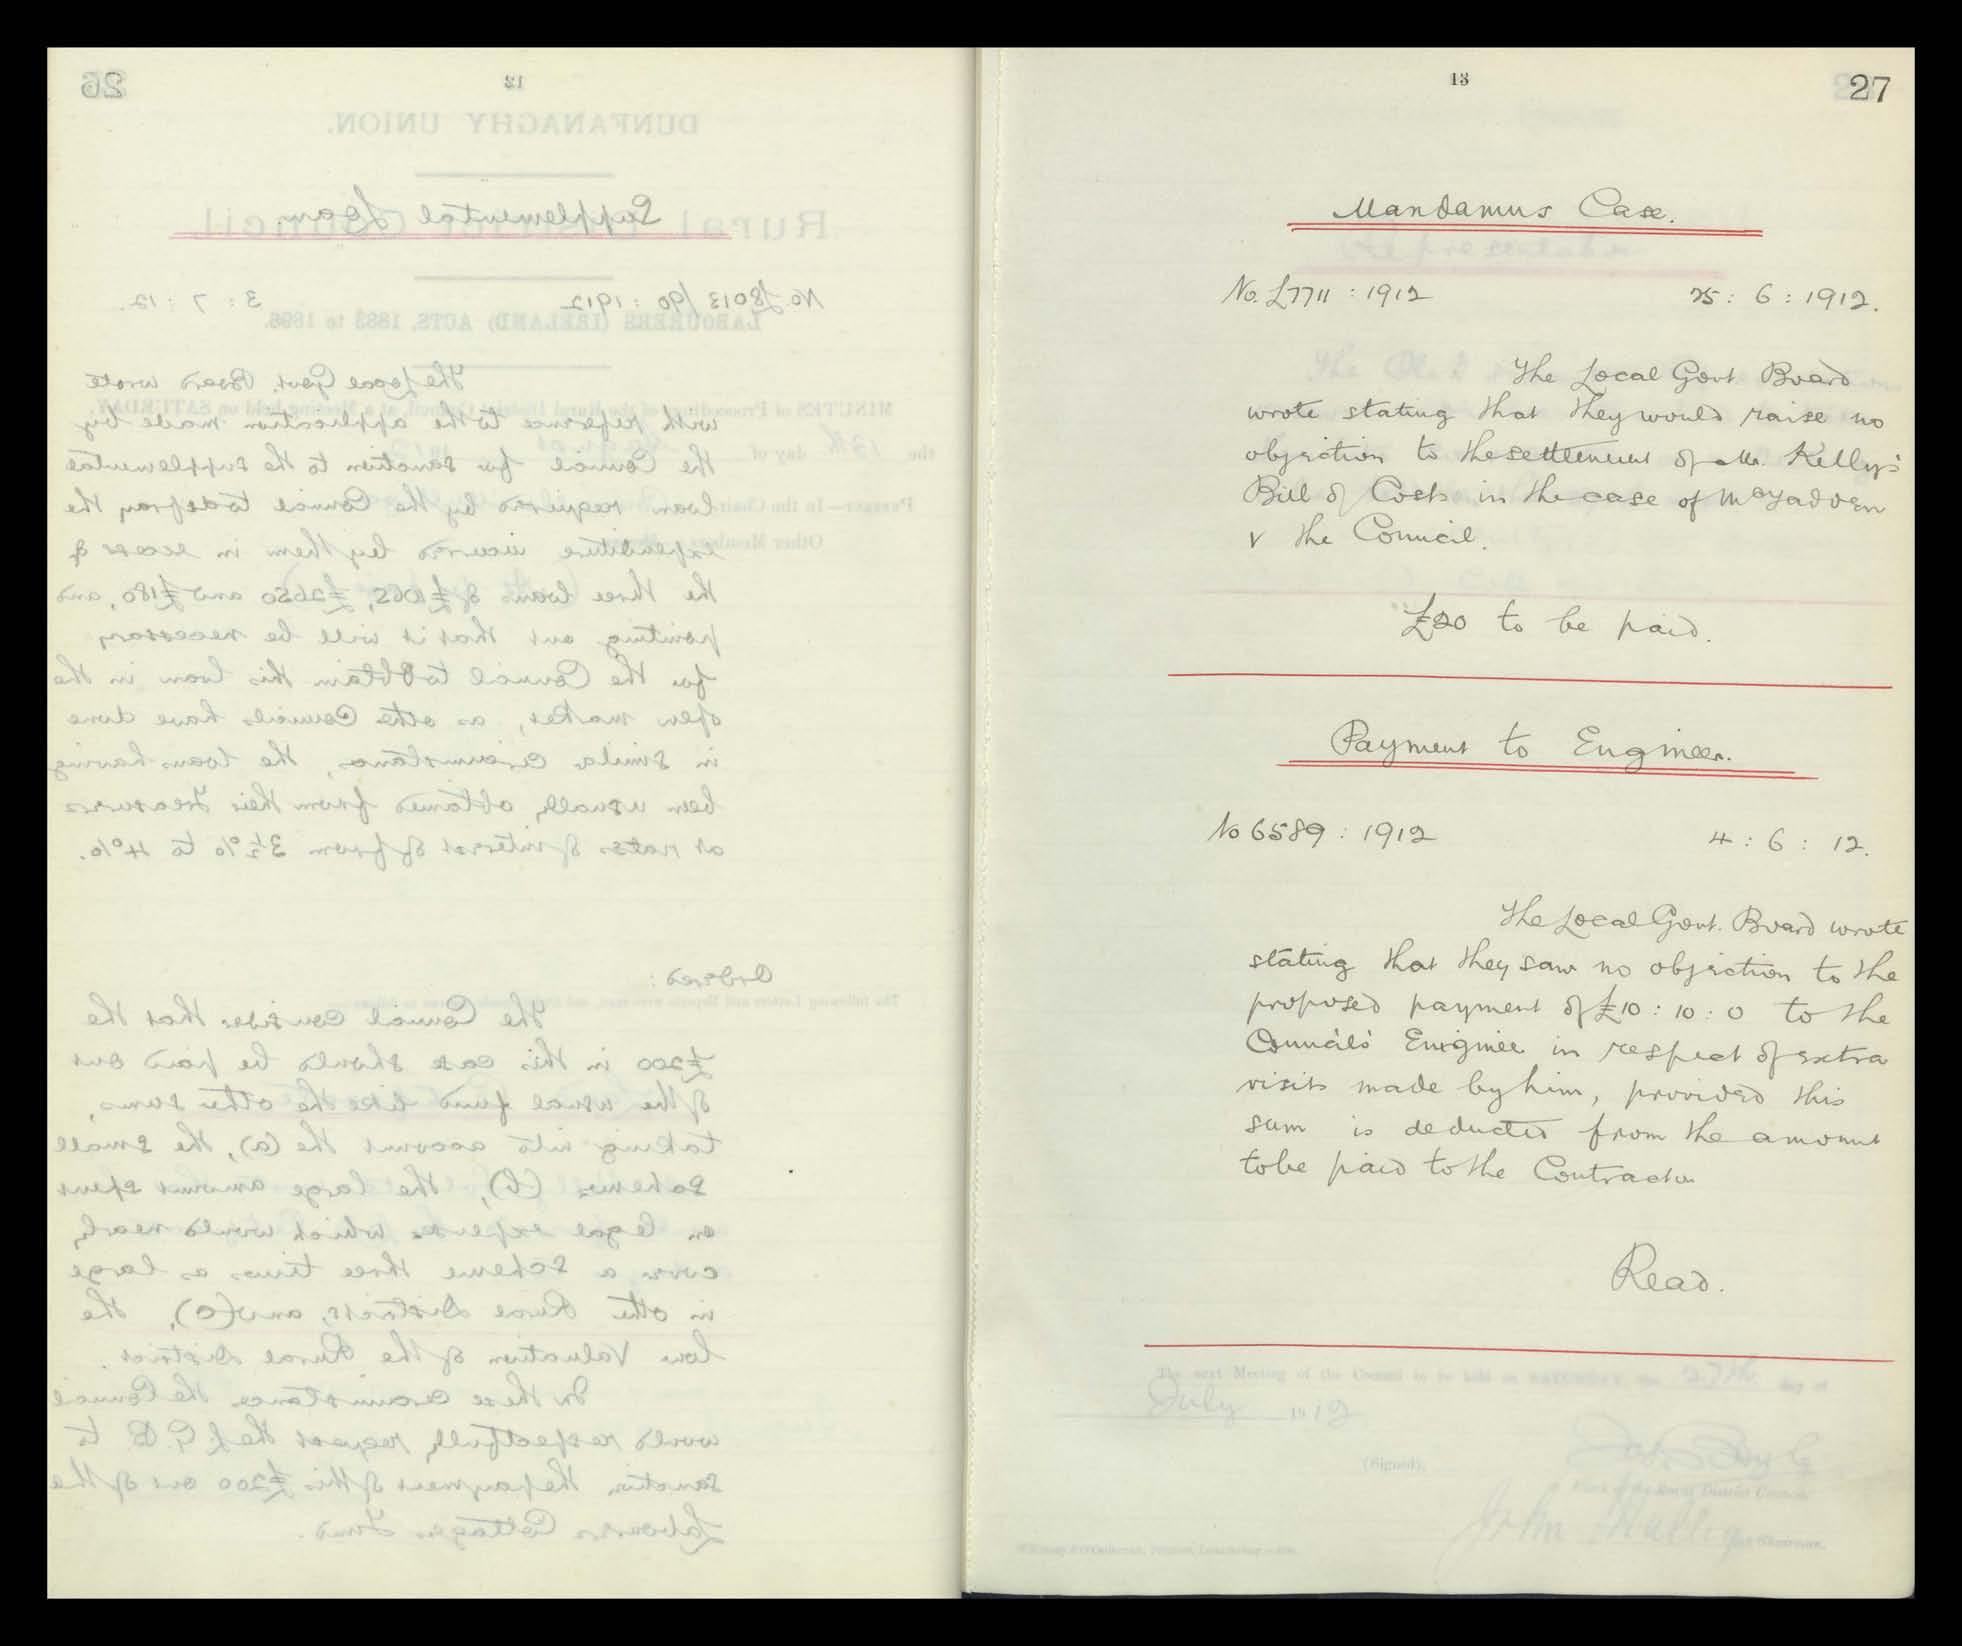 26
12
DUNFANAGHY UNION.
Supplemental Loan.
Rural District Council.
No. L8013/90 : 1912 3 : 7 : 12.
LABOURERS (IRELAND) ACTS, 1883 to 1896.
The Local Govt. Board wrote
with reference to the application made by
the Council for sanction to the supplemental
loan required by the Council to defray the
expenditure incurred by them in excess of
the three loans of £1062, £2650 and £180, and
pointing out that it will be necessary
for the Council to obtain this loan in the
open market, as other Councils have done
in similar circumstances, the loans having
been usually obtained from their Treasurers
at rates of interest of from 3½% to 4%.
Ordered:
The Council consider that the
£200 in this case should be paid out
of the usual fund like the other sums,
taking into account the (a), the small
scheme (b), the large amount spent
on legal expenses which would nearly
cover a scheme three times as large
in other Rural Districts, and (c), the
low Valuation of the Rural District.
In these circumstances the Council
would respectfully request the L.G.B. to
sanction the payment of this £200 out of the
Labourers Cottages Fund.
13
27
Mandamus Case.
No. L7711 : 1912 25 : 6 : 1912.
The Local Govt Board
wrote stating that they would raise no
objection to the settlement of Mr. Kelly's
Bill of Costs in the case of McFadden
v the Council.
£20 to be paid.
Payment to Engineer.
No 6589 : 1912 4 : 6 : 12.
The Local Govt. Board wrote
stating that they saw no objection to the
proposed payment of £10 : 10 : 0 to the
Council's Engineer in respect of extra
visits made by him, provided this
sum is deducted from the amount
to be paid to the Contractor
Read.
The next Meeting of the Council to be held on SATURDAY, the 27th day of
July 1912
(Signed),
Clerk of the Rural District Council.
John
Chairman.